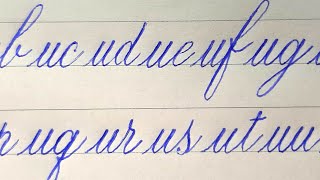 bucudueufug
puqurusutuu